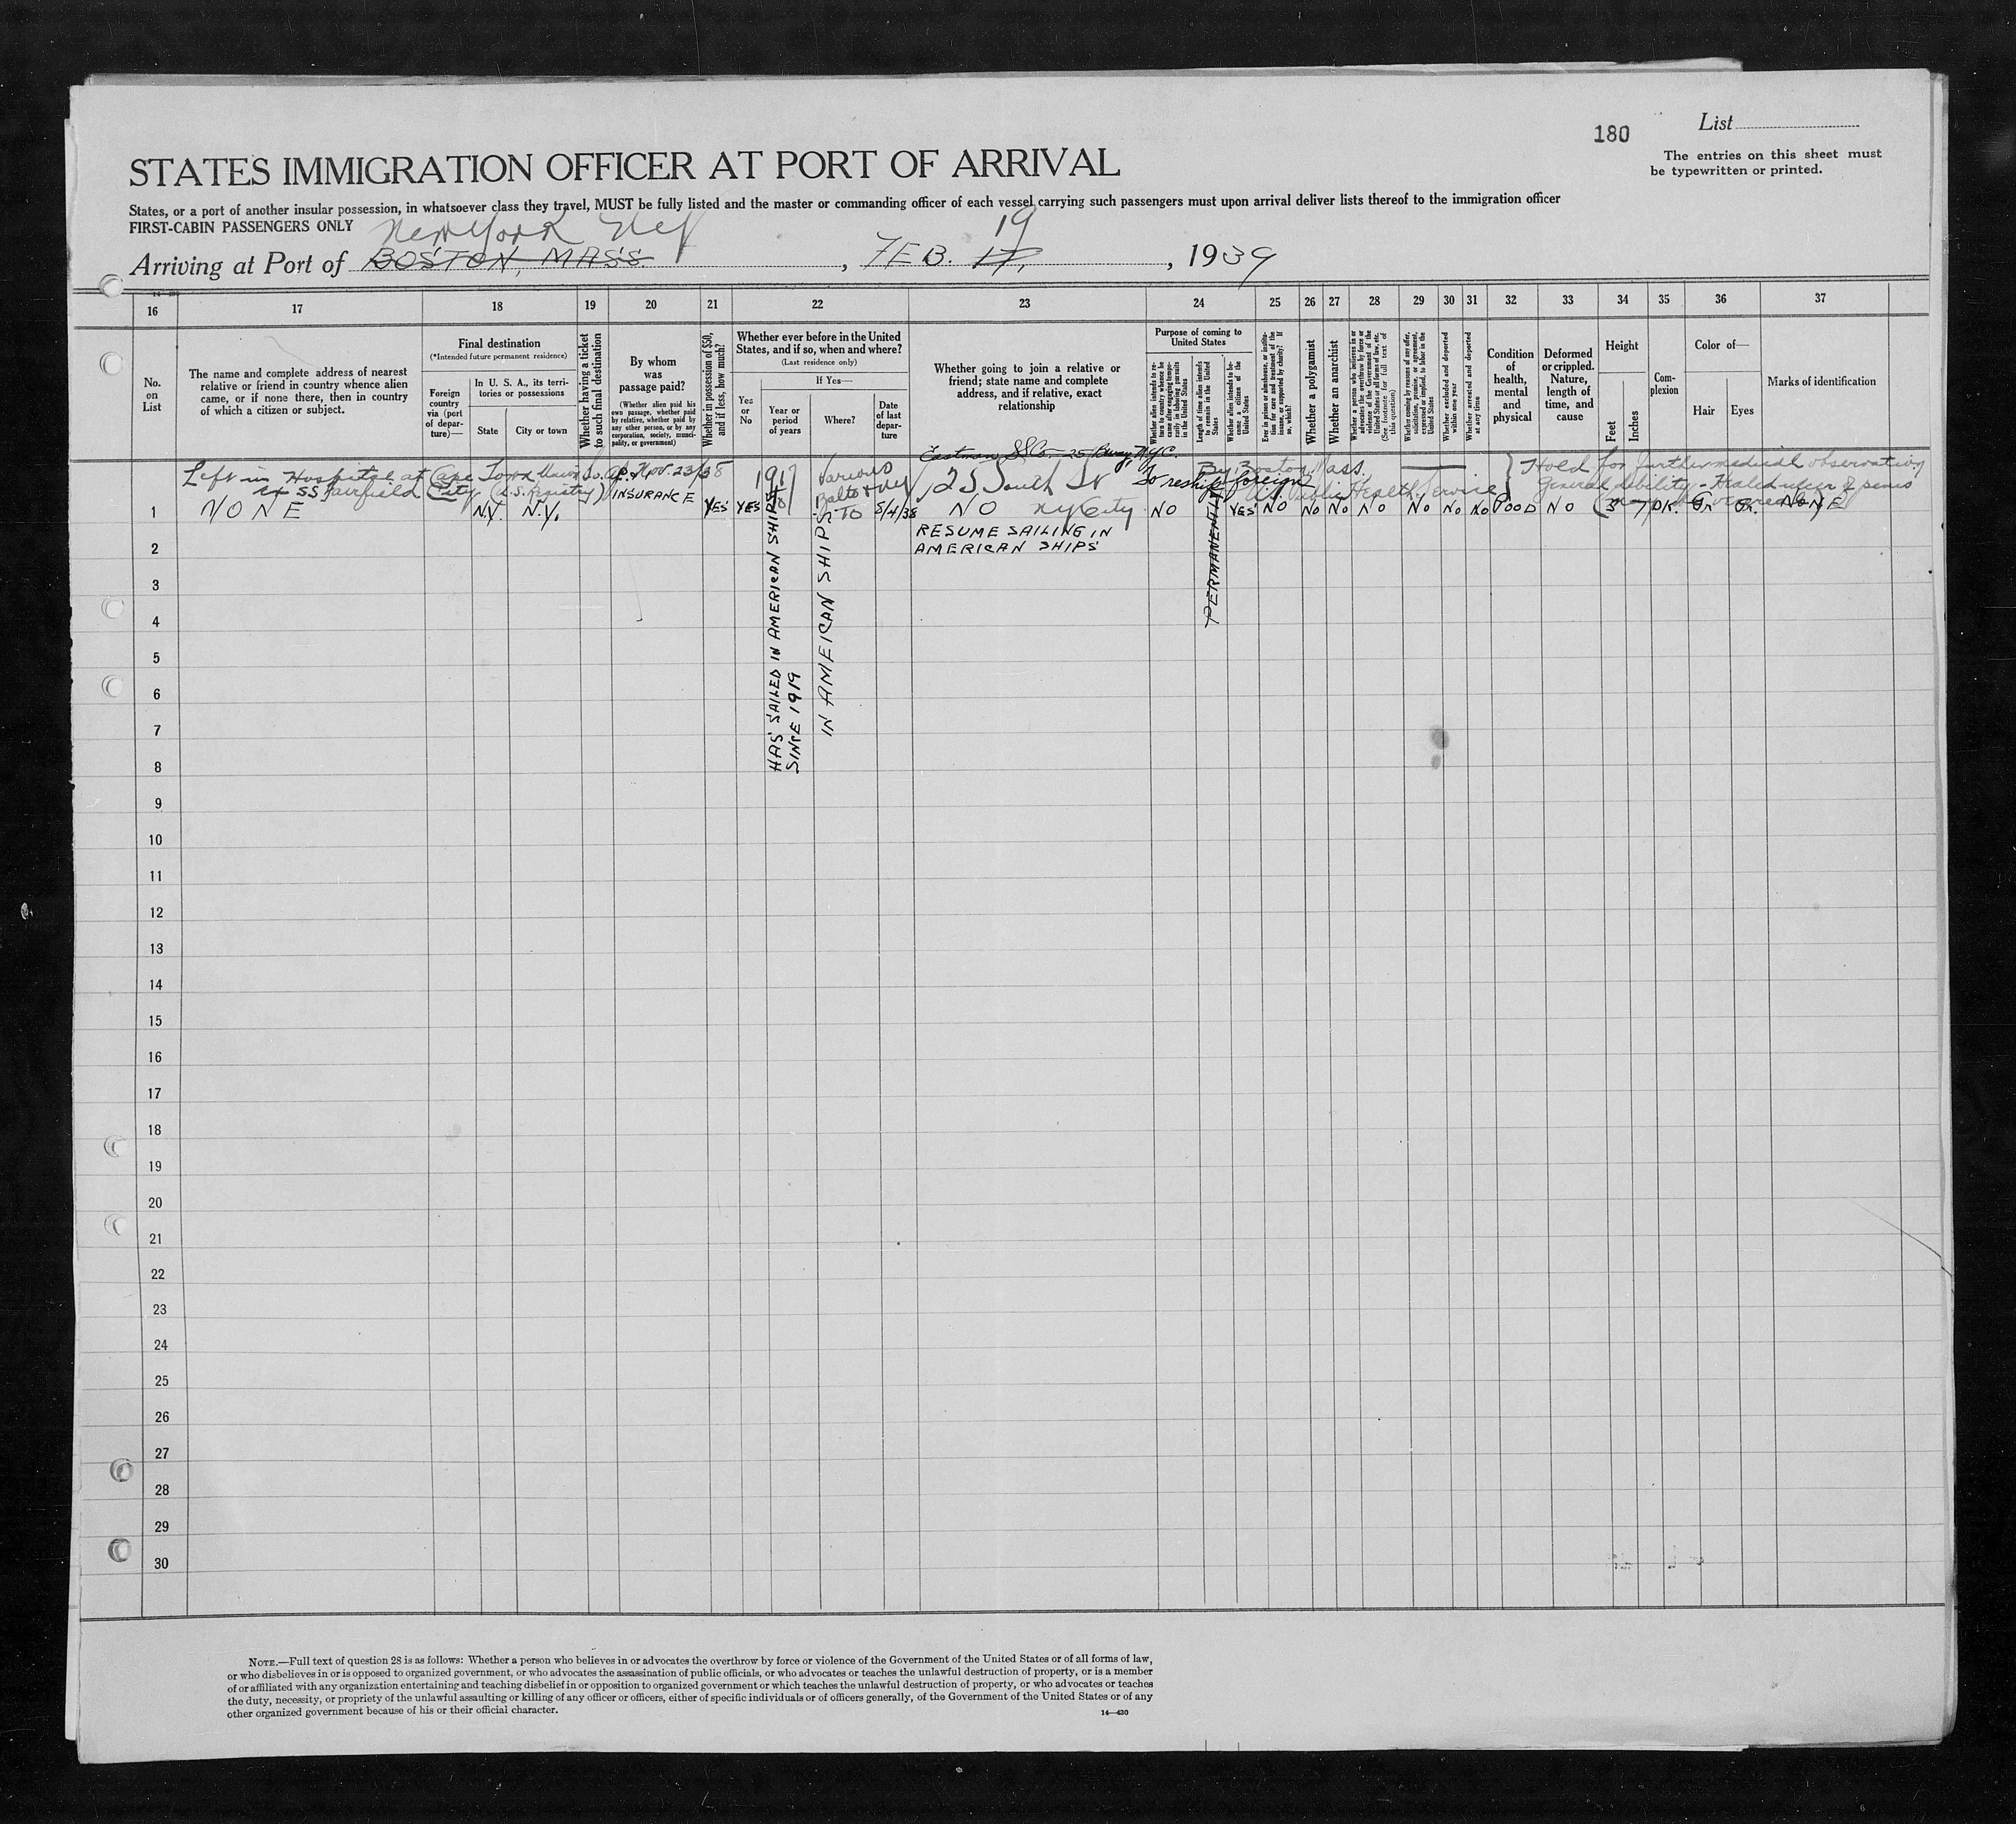 180
List
The entries on this sheet must
be typewritten or printed.
STATES IMMIGRATION OFFICER AT PORT OF ARRIVAL
States, or a port of another insular possession, in whatsoever class they travel, MUST be fully listed and the master or commanding officer of each vessel carrying such passengers must upon arrival deliver lists thereof to the immigration officer
FIRST-CABIN PASSENGERS ONLY
New York
19
Arriving at Port of BOSTON, MASS. , FEB. 17, , 1939
16 17 18 19 20 21 22 23 24 25 26 27 28 29 30 31 32 33 34 35 36 37
No. on List
The name and complete address of nearest
relative or friend in country whence alien
came, or if none there, then in country
of which a citizen or subject.
Final destination
(*Intended future permanent residence)
Foreign country via (port of depar-ture)—
In U. S. A., its terri-
tories or possessions
State
City or town
Whether having a ticket
to such final destination
By whom
was
passage paid?
(Whether alien paid his
own passage, whether paid
by relative, whether paid by
any other person, or by any
corporation, society, munici-
pality, or government)
Whether in possession of $50,
and if less, how much?
Whether ever before in the United
States, and if so, when and where?
(Last residence only)
Yes or No
If Yes—
Year or period of years
Where?
Date of last depar-ture
Whether going to join a relative or
friend; state name and complete
address, and if relative, exact
relationship
Purpose of coming to
United States
Whether alien intends to re-
turn to country whence he
came after engaging tempo-
rarily in laboring pursuits
in the United States
Length of time alien intends
to remain in the United
States
Whether alien intends to be-
come a citizen of the
United States
Ever in prison or almshouse, or institu-
tion for care and treatment of the
insane, or supported by charity? If
so, which?
Whether a polygamist
Whether an anarchist
Whether a person who believes in or
advocates the overthrow by force or
violence of the Government of the
United States or all forms of law, etc.
(See footnote for full text of
this question)
Whether coming by reasons of any offer,
solicitation, promise, or agreement,
expressed or implied, to labor in the
United States
Whether excluded and deported
within one year
Whether arrested and deported
at any time
Condition
of
health,
mental
and
physical
Deformed
or crippled.
Nature,
length of
time, and
cause
Height
Feet
Inches
Com-
plexion
Color of—
Hair
Eyes
Marks of identification
Eastern SSCo 25 Bway, NYC.
Left in Hospital at Cape Town Union So. Af. Nov. 23/38
ex SS Fairfield City (U.S. Registry) INSURANCE
1917
Various
Balto &
25 South St
To reship foreign
By Boston Mass.
U.S. Public Health Service
Hold for further medical observation
General debility - Healed ulcer of penis
1 NONE N.Y. N.Y. YES YES TO 5/4/38 NO NY City NO YES NO NO NO NO NO NO NO GOOD NO 5 7 DK. Gr. NONE
RESUME SAILING IN
AMERICAN SHIPS
HAS SAILED IN AMERICAN SHIPS
SINCE 1919
IN AMEICAN SHIPS
PERMANENTLY
2
3
4
5
6
7
8
9
10
11
12
13
14
15
16
17
18
19
20
21
22
23
24
25
26
27
28
29
30
NOTE.—Full text of question 28 is as follows: Whether a person who believes in or advocates the overthrow by force or violence of the Government of the United States or of all forms of law,
or who disbelieves in or is opposed to organized government, or who advocates the assassination of public officials, or who advocates or teaches the unlawful destruction of property, or is a member
of or affiliated with any organization entertaining and teaching disbelief in or opposition to organized government or which teaches the unlawful destruction of property, or who advocates or teaches
the duty, necessity, or propriety of the unlawful assaulting or killing of any officer or officers, either of specific individuals or of officers generally, of the Government of the United States or of any
other organized government because of his or their official character.
14—430